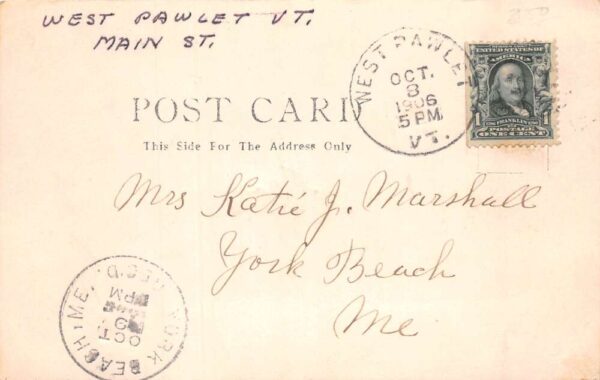 WEST PAWLET VT.
MAIN ST.
WEST PAWLET
OCT.
8
1906
5 PM
VT.
UNITED STATES OF
AMERICA
1 FRANKLIN 1
POSTAGE
ONE CENT
POST CARD
This Side For The Address Only
Mrs Katie J. Marshall
York Beach
Me
YORK BEACH, ME. REC'D.
OCT.
9
PM